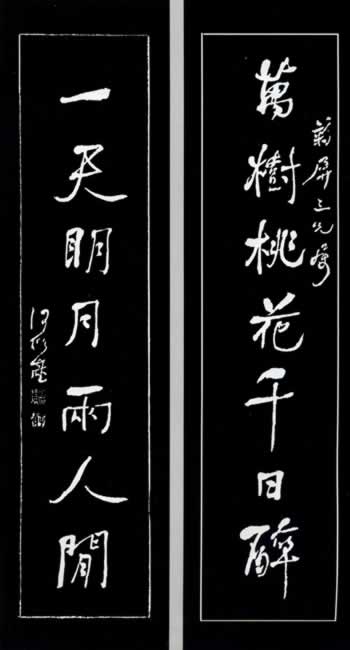 萬樹桃花千日醉
屏三兄屬
一天明月兩人閒
何紹基